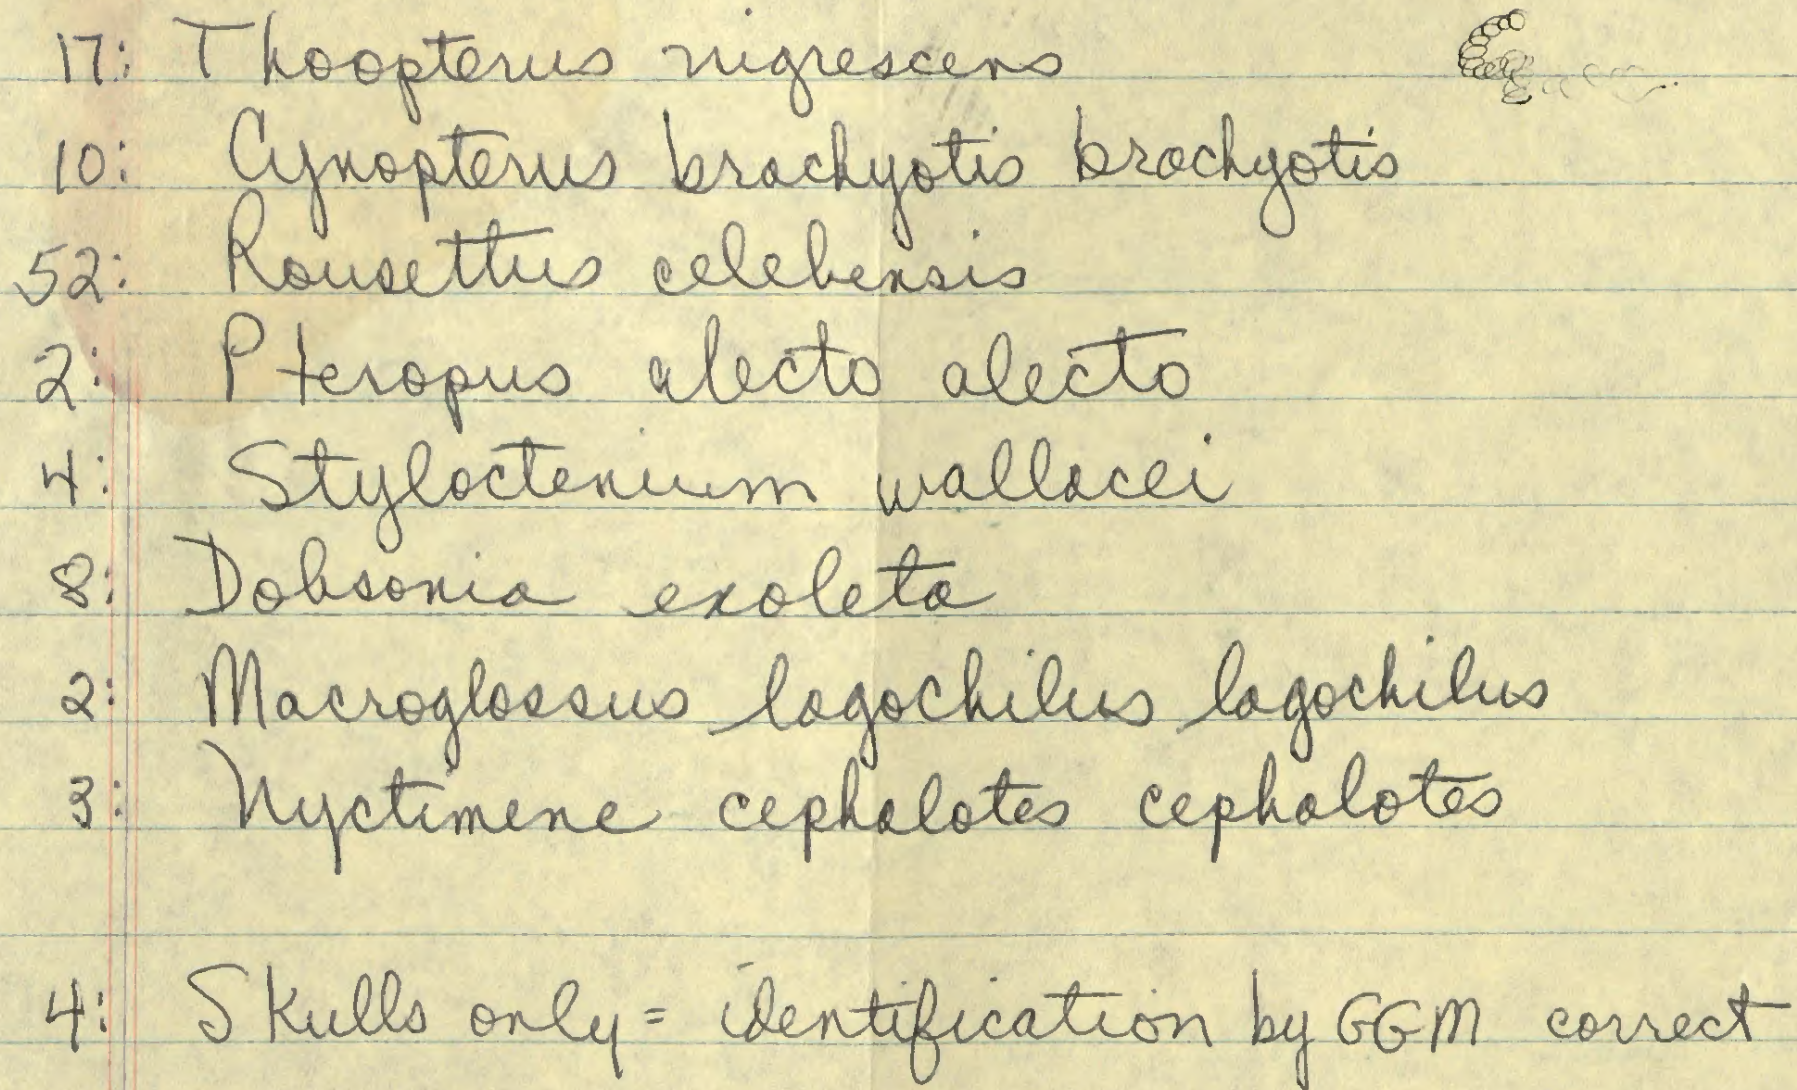 17: Thoopterus nigrescens
10: Cynopterus brachyotis brachyotis
52: Rousettus celebensis
2: Pteropus alecto alecto
4: Styloctenium wallacei
8: Dobsonia exoleta
2: Macroglossus lagochilus lagochilus
3: Nyctimene cephalotes cephalotes
4: Skulls only = identification by GGM correct